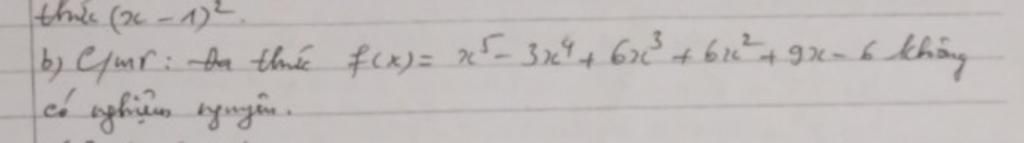 thức (x - 1)².
b) C/mr: Đa thức f(x) = x⁵ - 3x⁴ + 6x³ + 6x² + 9x - 6 không
có nghiệm nguyên.